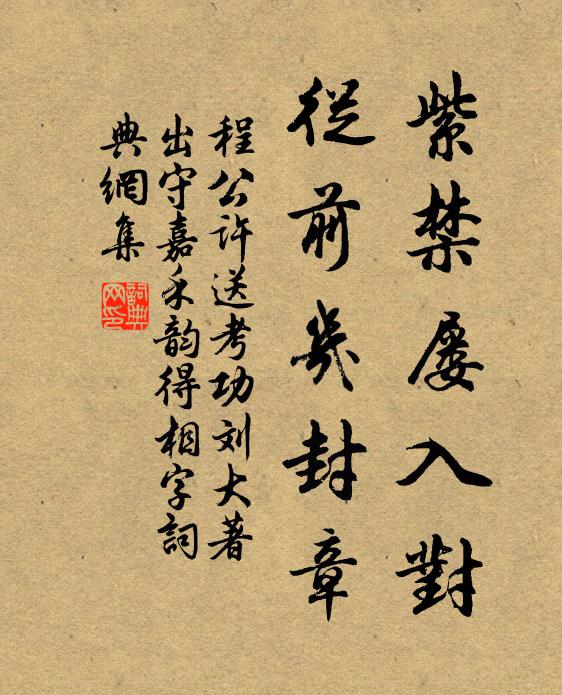 紫禁屡入對
從前幾封章
程公许送考功刘大著
出守嘉禾韵得相字詞
典網集
詞典網印